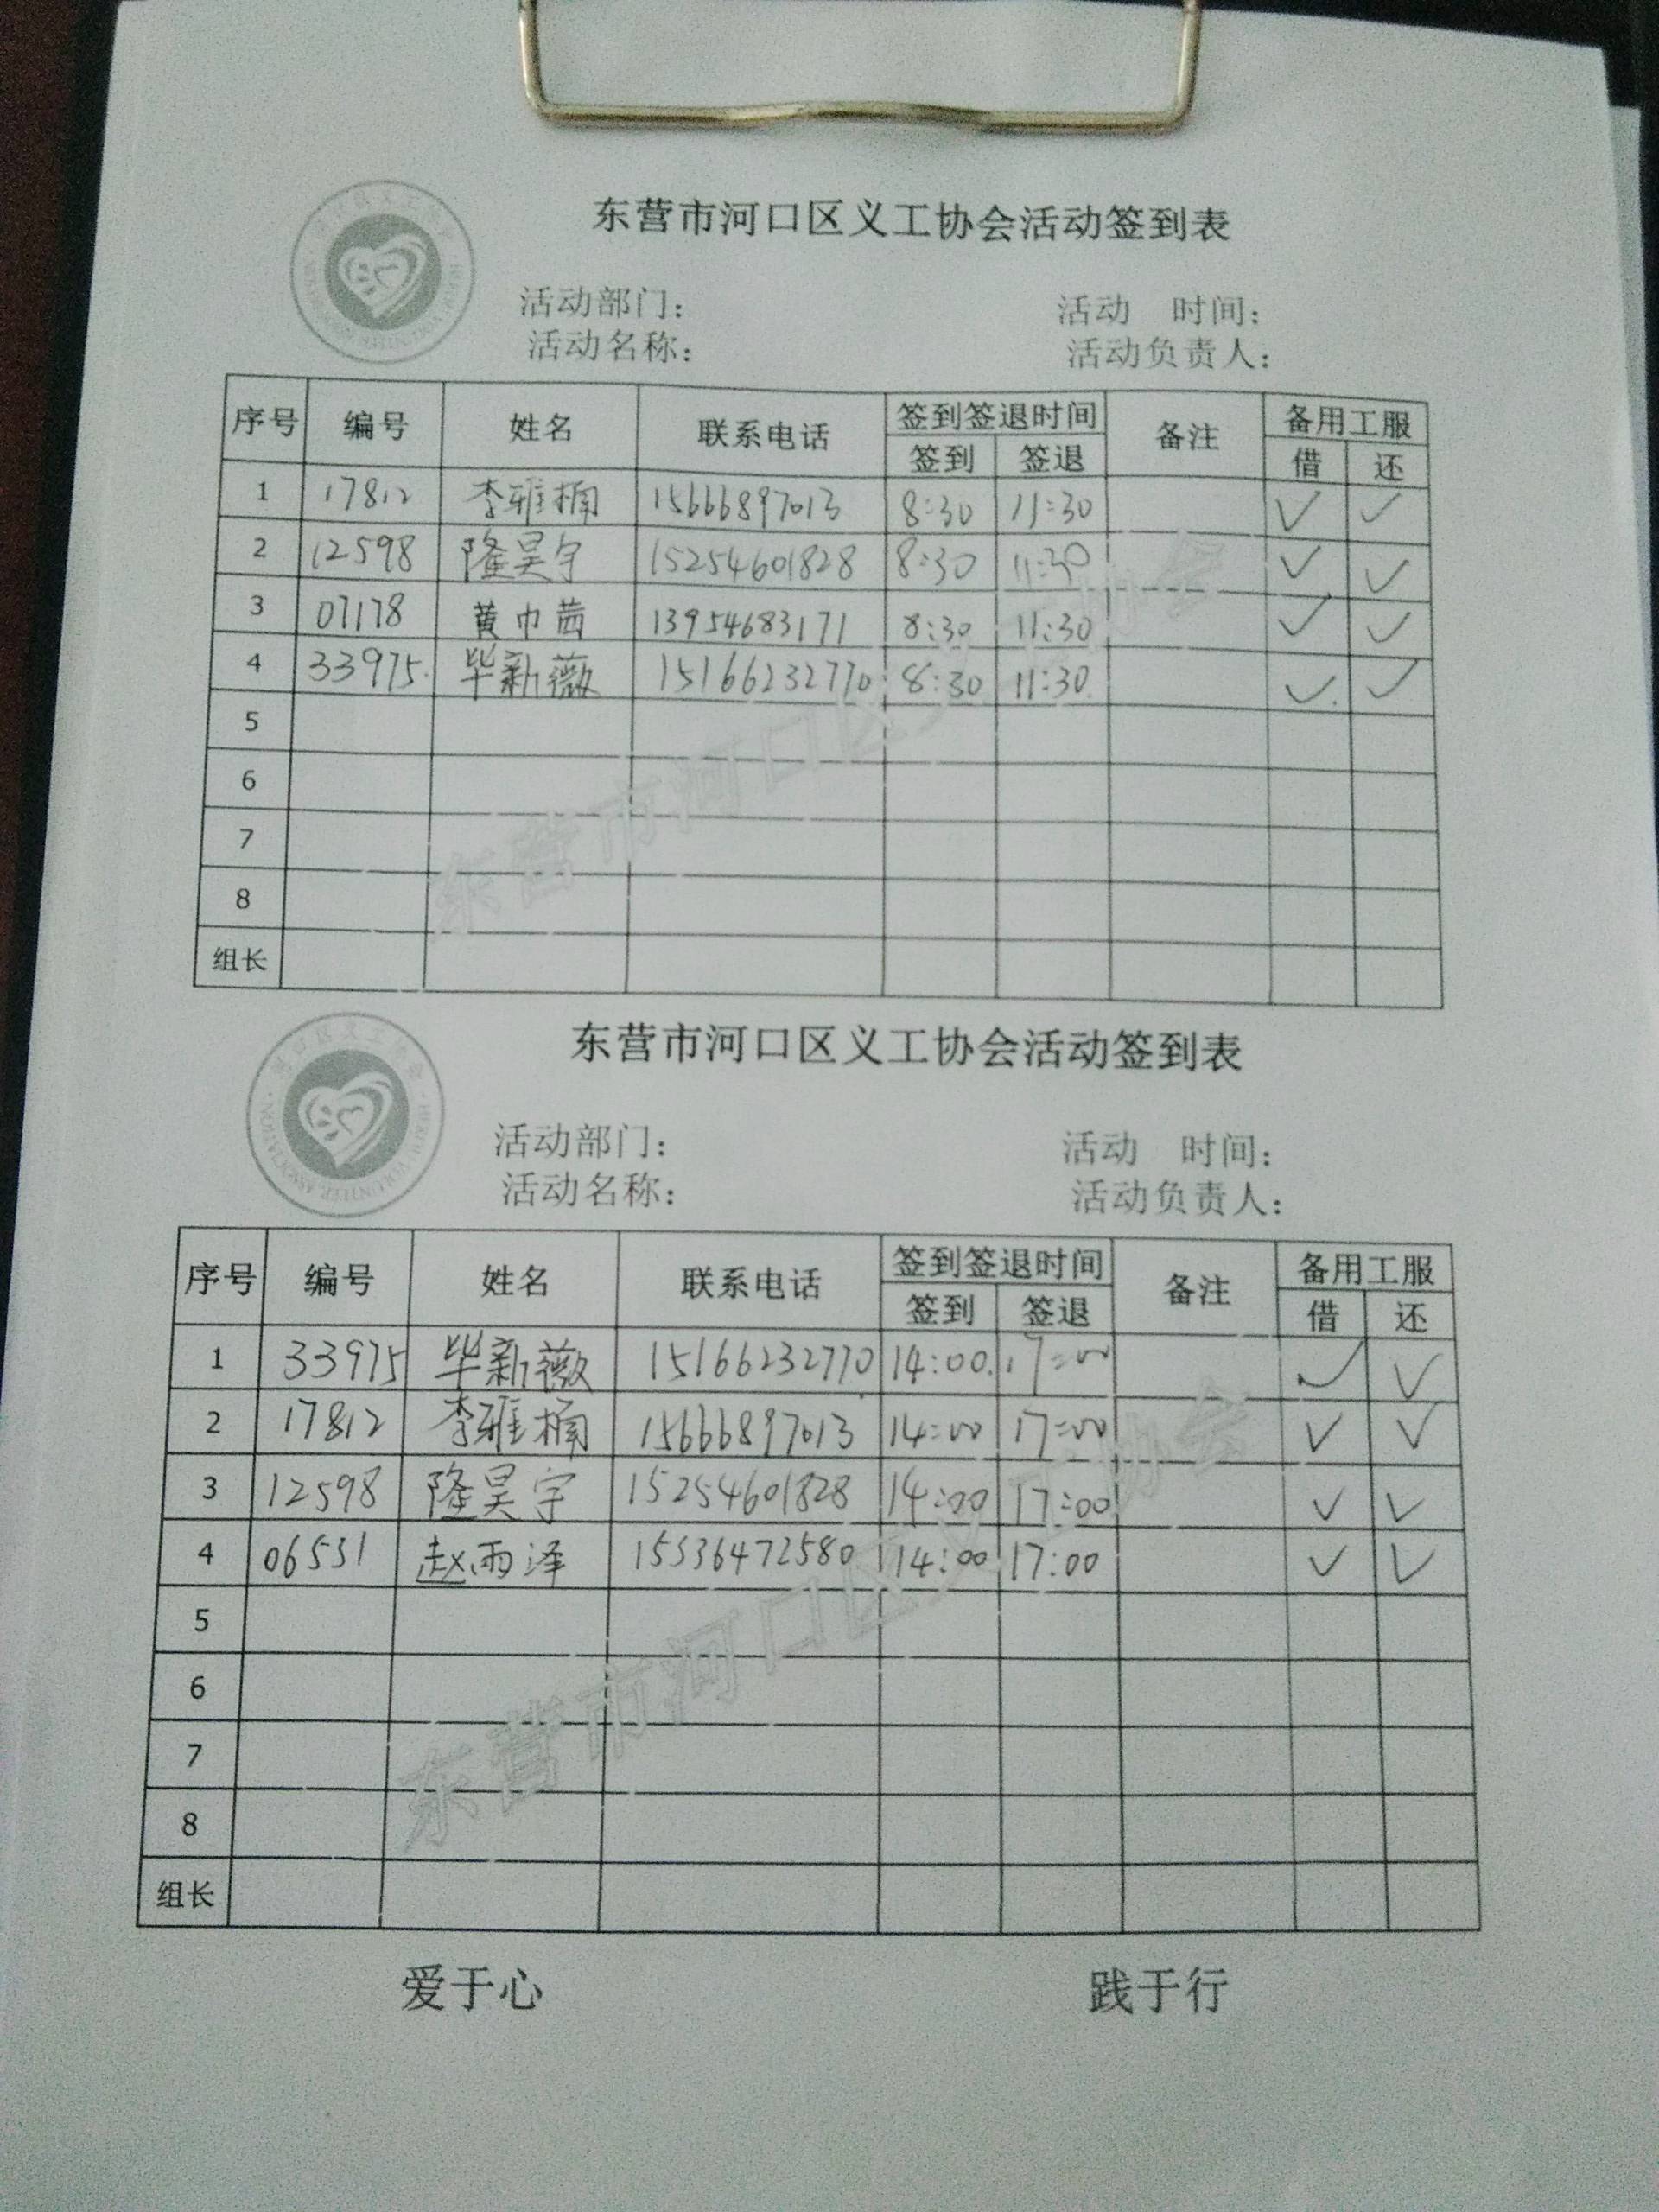 东营市河口区义工协会活动签到表
活动部门： 活动 时间：
活动名称： 活动负责人：
序号 编号 姓名 联系电话 签到签退时间 备注 备用工服
签到 签退 借 还
1 17812 李雅楠 15666897013 8:30 11:30 ✓ ✓
2 12598 隆昊宇 15254601828 8:30 11:30 ✓ ✓
3 07178 黄巾茜 13954683171 8:30 11:30 ✓ ✓
4 33975 毕新薇 15166232770 8:30 11:30 ✓ ✓
5
6
7
8
组长
东营市河口区义工协会活动签到表
活动部门： 活动 时间：
活动名称： 活动负责人：
序号 编号 姓名 联系电话 签到签退时间 备注 备用工服
签到 签退 借 还
1 33975 毕新薇 15166232770 14:00 17:00 ✓ ✓
2 17812 李雅楠 15666897013 14:00 17:00 ✓ ✓
3 12598 隆昊宇 15254601828 14:00 17:00 ✓ ✓
4 06531 赵雨泽 15336472580 14:00 17:00 ✓ ✓
5
6
7
8
组长
爱于心 践于行